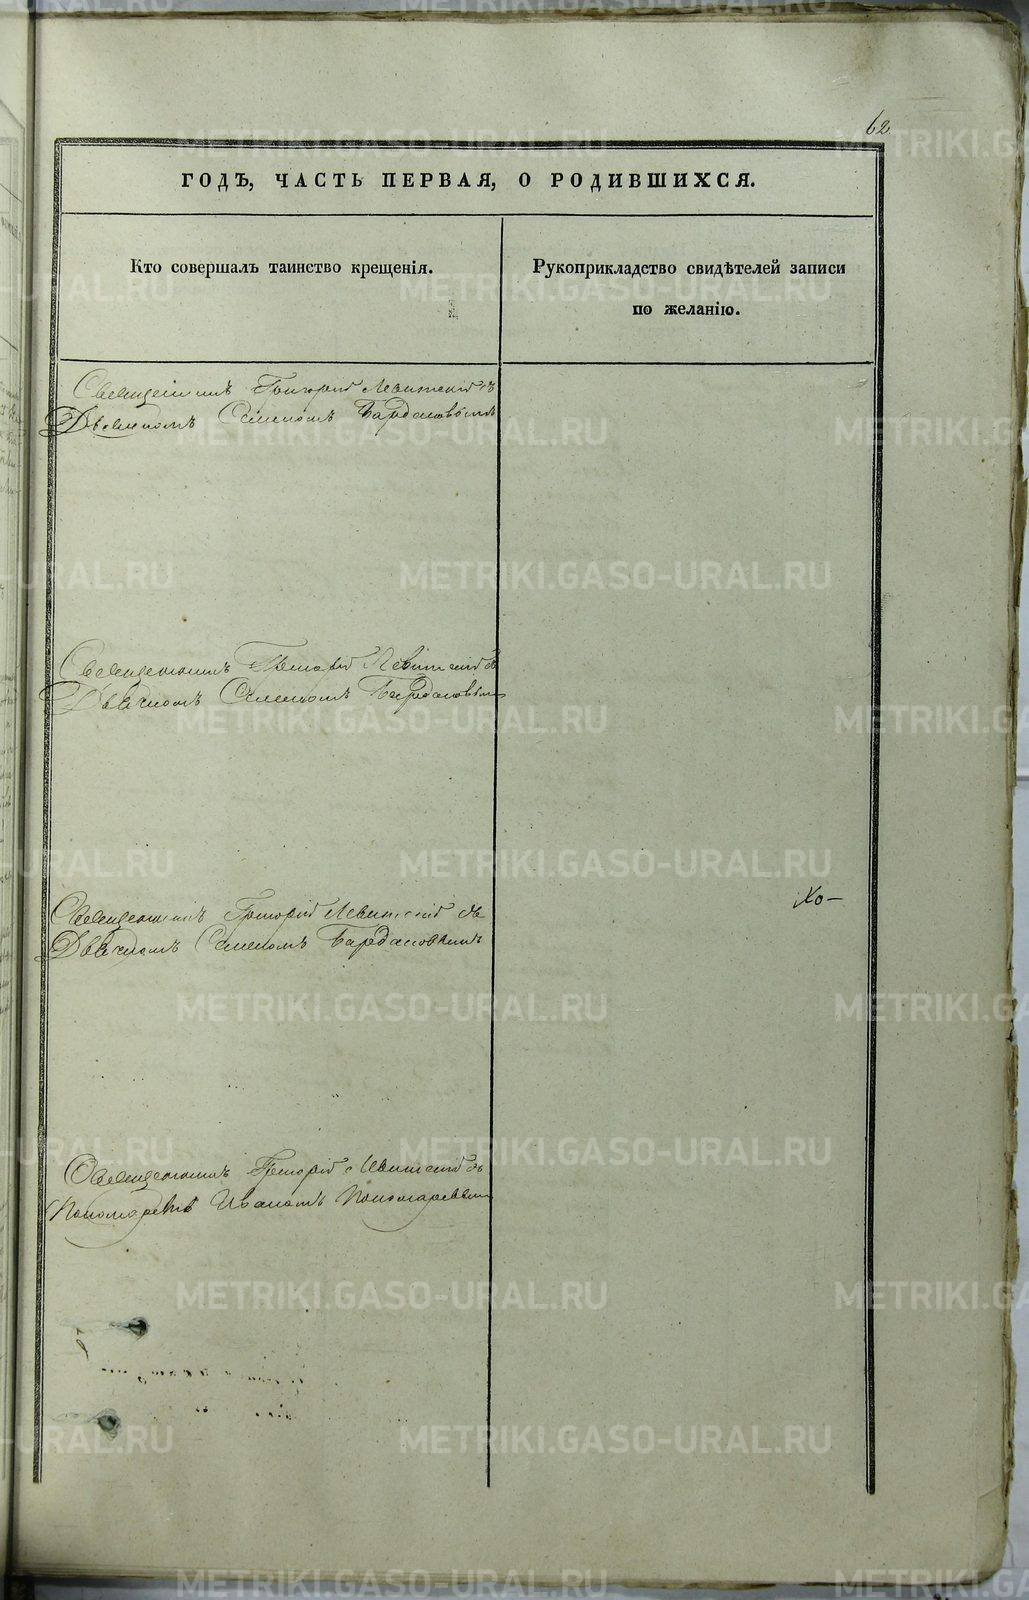 62
ГОДЪ, ЧАСТЬ ПЕРВАЯ, О РОДИВШИХСЯ.
Кто совершалъ таинство крещенія.
Рукоприкладство свидѣтелей записи
по желанію.
Священникъ Григорій Левитскій съ
Дьячкомъ Семеномъ Бардановымъ
Священникъ Григорій Левитскій съ
Дьячкомъ Семеномъ Бардановымъ
Священникъ Григорій Левитскій съ
Дьячкомъ Семеномъ Бардановымъ
Хо-
Священникъ Григорій Левитскій съ
Пономаремъ Иваномъ Пономаревымъ
METRIKI.GASO-URAL.RU